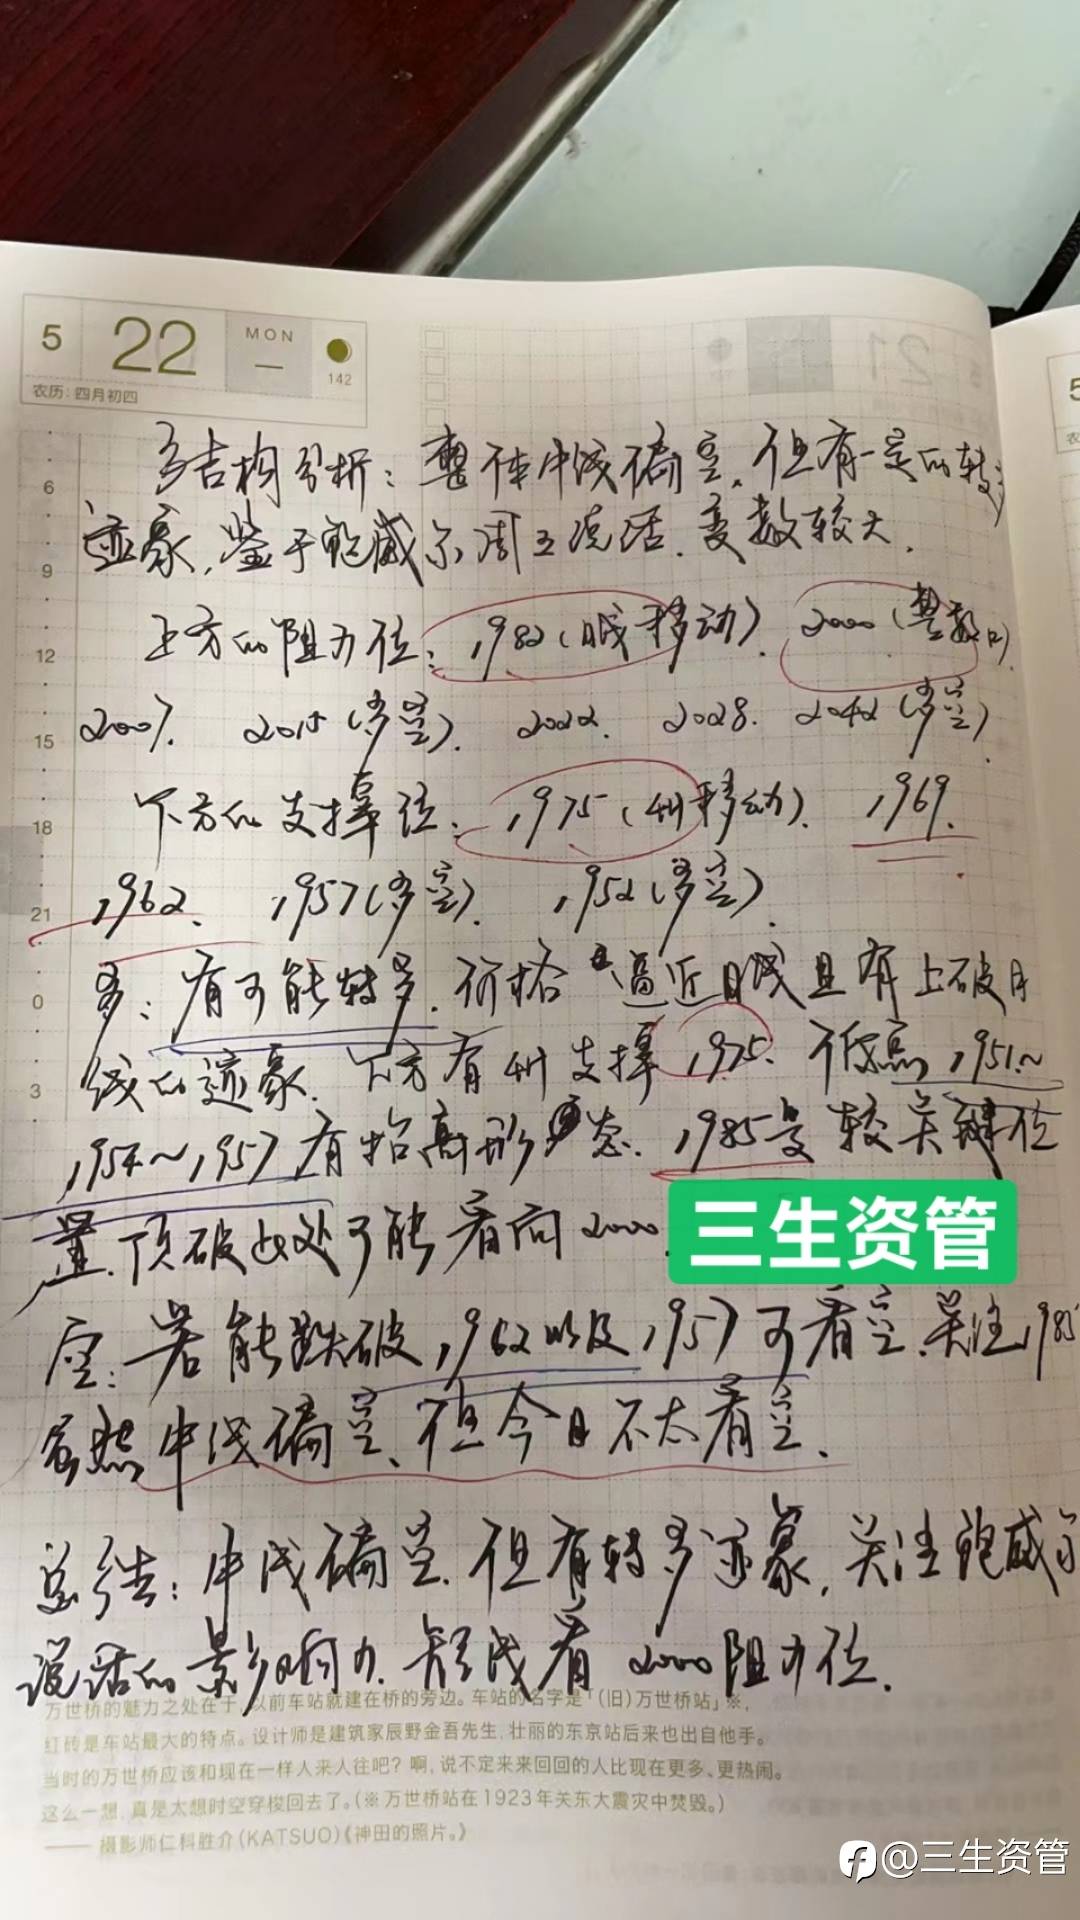 5 22 MON 一 142
农历: 四月初四
21
多结构分析: 整体中线偏空. 但有一定的转多
迹象, 鉴于鲍威尔周五说话. 变数较大.
上方的阻力位: 1982(日线移动). 2000(整数口).
2007. 2015(多空). 2022. 2028. 2042(多空)
下方的支撑位: 1975(4H移动). 1969.
1962. 1957(多空). 1952(多空).
多: 有可能转多. 价格 逼近日线且有上破月
线的迹象. 下方有4H支撑 1975. 低点 1951~
1954~1957有抬高形态. 1985是较关键位
置. 顶破此处可能看向2000.
三生资管
空: 若能跌破1962以及1957可看空. 关注1985
虽然中线偏空, 但今日不太看空.
总结: 中线偏空. 但有转多迹象, 关注鲍威尔
说话的影响力. 短线看 2000阻力位.
6
9
12
15
18
21
0
3
万世桥的魅力之处在于, 以前车站就建在桥的旁边。车站的名字是「(旧)万世桥站」※,
红砖是车站最大的特点。设计师是建筑家辰野金吾先生, 壮丽的东京站后来也出自他手。
当时的万世桥应该和现在一样人来人往吧? 啊, 说不定来来回回的人比现在更多、更热闹。
这么一想, 真是太想时空穿梭回去了。(※万世桥站在1923年关东大震灾中焚毁。)
—— 摄影师仁科胜介(KATSUO)《神田的照片。》
@三生资管